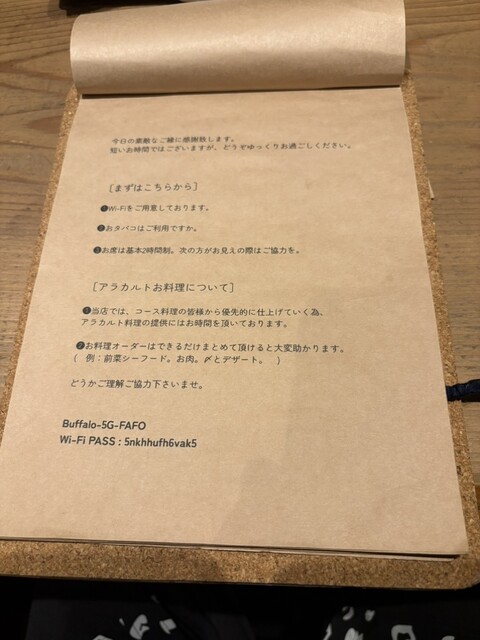 今日の素敵なご縁に感謝致します。
短いお時間ではございますが、どうぞゆっくりお過ごしください。
[まずはこちらから]
❶Wi-Fiをご用意しております。
❷おタバコはご利用ですか。
❸お席は基本2時間制。次の方がお見えの際はご協力を。
[アラカルトお料理について]
❶当店では、コース料理の皆様から優先的に仕上げていく為、
アラカルト料理の提供にはお時間を頂いております。
❷お料理オーダーはできるだけまとめて頂けると大変助かります。
( 例：前菜シーフード。お肉。〆とデザート。 )
どうかご理解ご協力下さいませ。
Buffalo-5G-FAFO
Wi-Fi PASS : 5nkhhufh6vak5